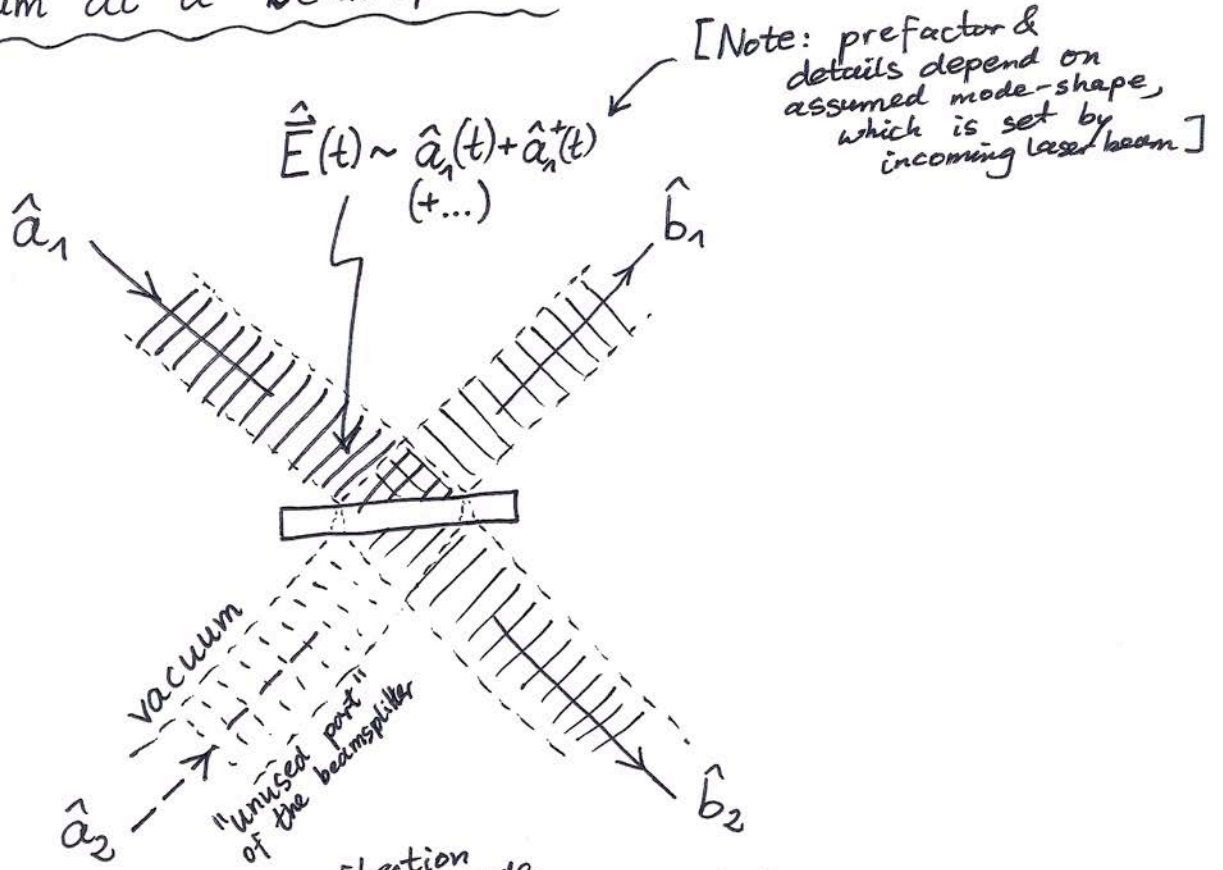 at a
[Note: prefactor &
details depend on
assumed mode-shape,
which is set by
incoming laser beam]
$\hat{\vec{E}}(t) \sim \hat{a}_1(t) + \hat{a}_1^+(t)$
(+...)
$\hat{a}_1$
$\hat{b}_1$
vacuum
"unused port"
of the beamsplitter
$\hat{a}_2$
$\hat{b}_2$